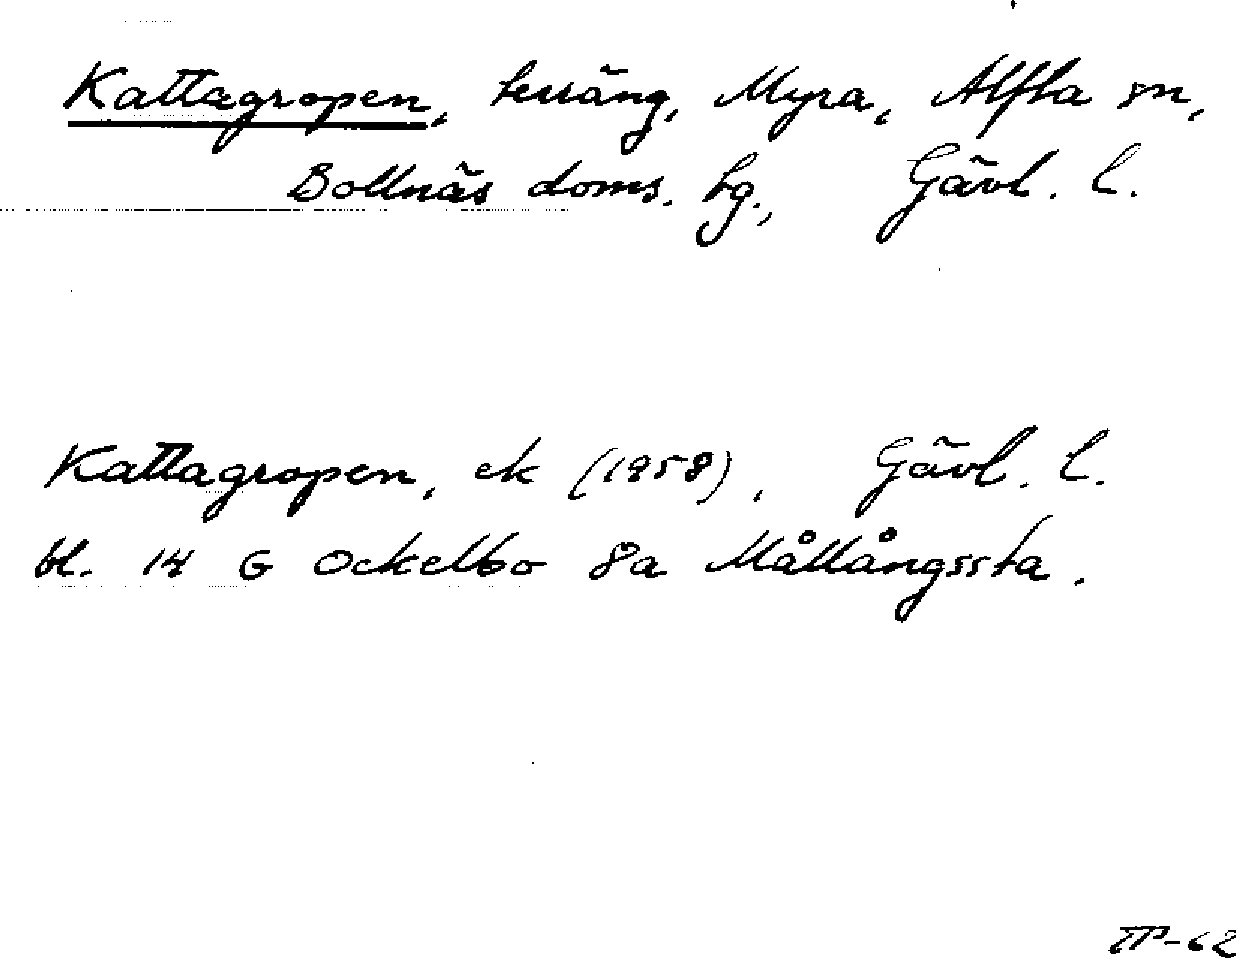 Kattagropen, terräng, Myra, Alfta sn,
Bollnäs doms. hg., Gävl. l.
Kattagropen, ek (1958), Gävl. l.
bl. 14 G Ockelbo 8a Mållångssta.
TP-62